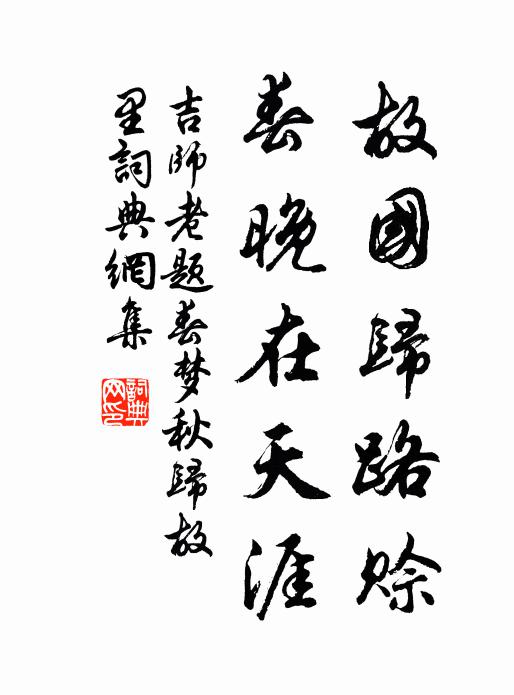 故國歸路賒
春晚在天涯
吉師老題春梦秋歸故
里詞典網集
詞典网印